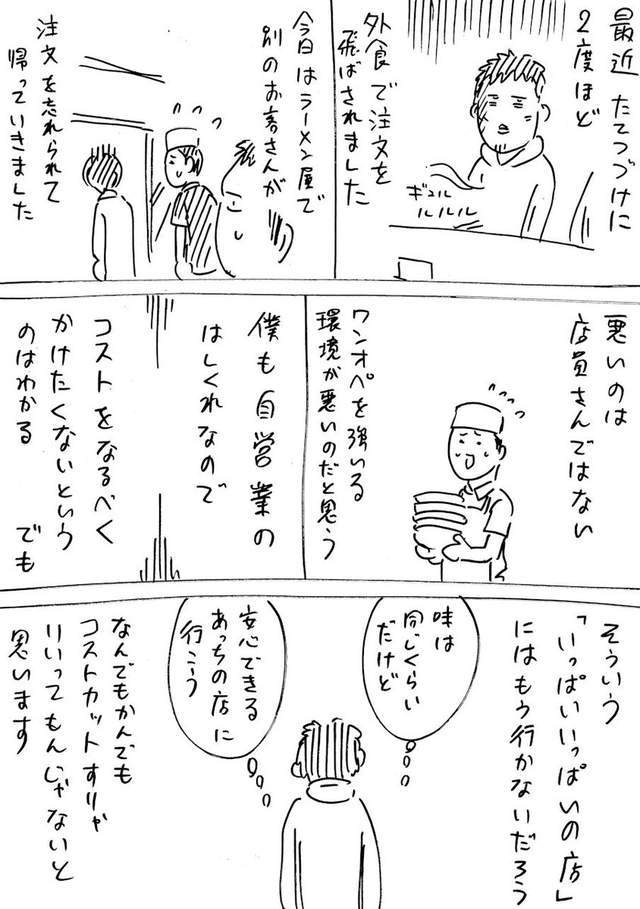 最近 たてつづけに
2度ほど
ギュル
ルルルル
外食で注文を
飛ばされました
今日はラーメン屋で
別のお客さんが
注文を忘れられて
帰っていきました
悪いのは
店員さんではない
ワンオペを強いる
環境が悪いのだと思う
僕も自営業の
はしくれなので
コストをなるべく
かけたくないという
のはわかる
でも
そういう
「いっぱいいっぱいの店」
にはもう行かないだろう
味は
同じくらい
だけど
安心できる
あっちの店に
行こう
なんでもかんでも
コストカットすりゃ
いいってもんじゃないと
思います